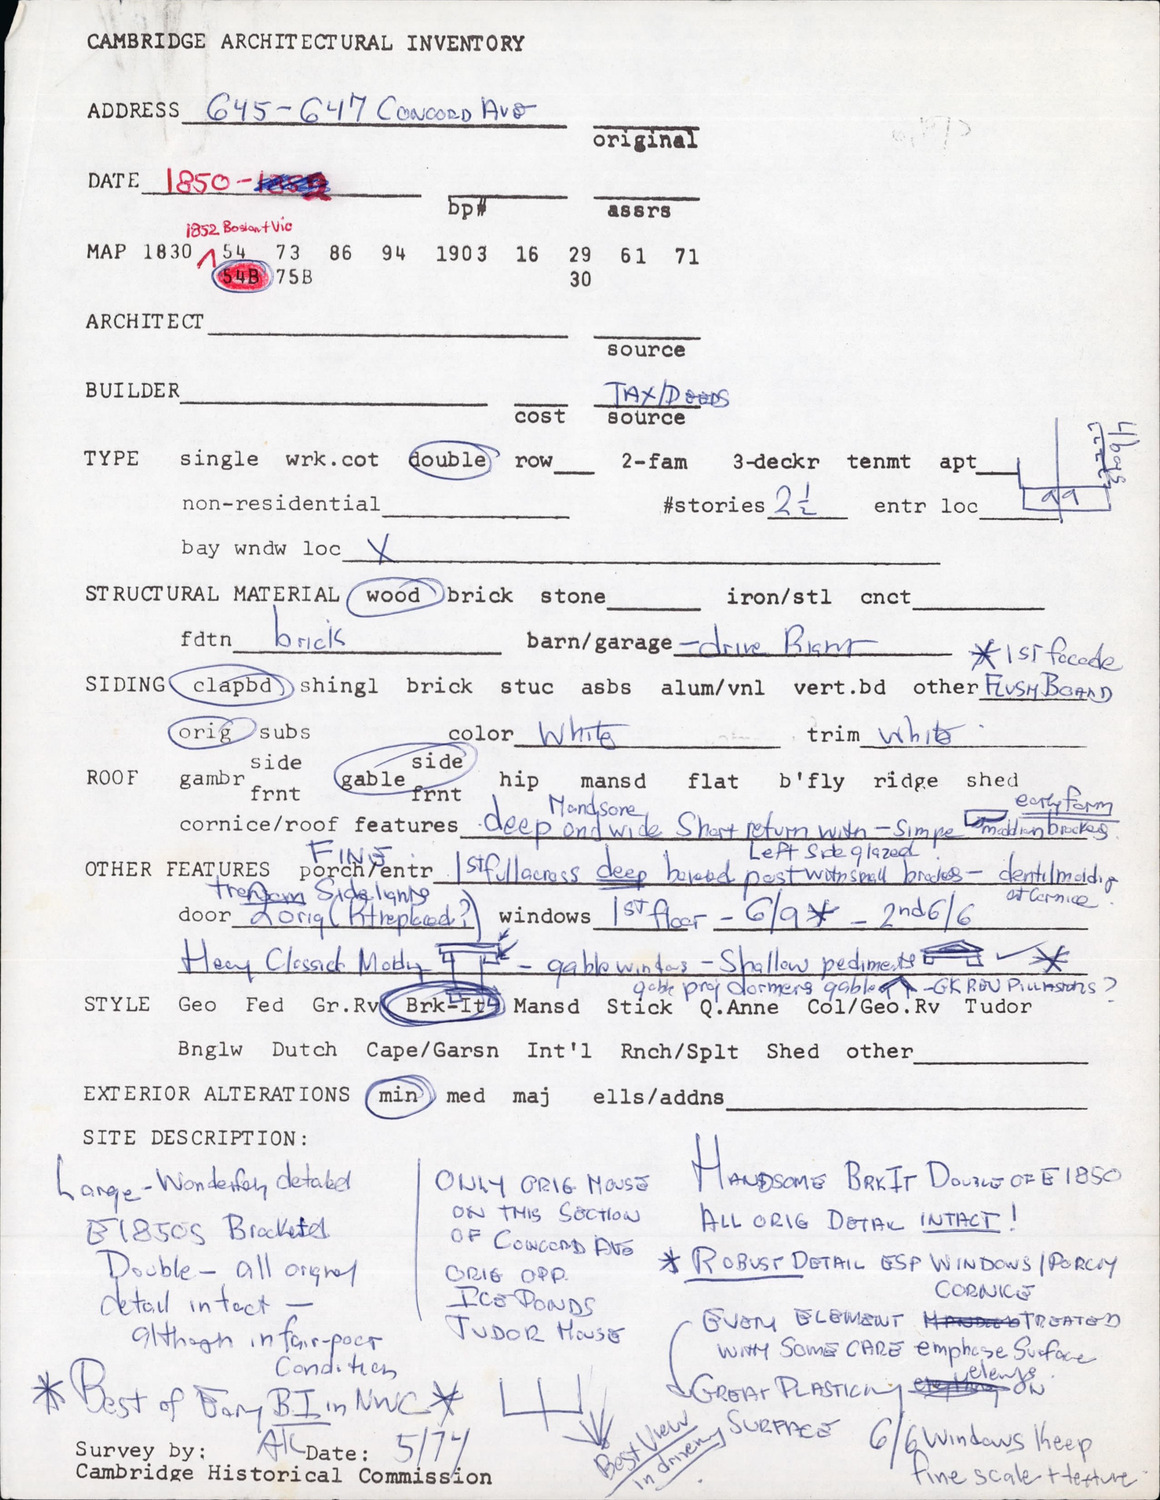 CAMBRIDGE ARCHITECTURAL INVENTORY
ADDRESS 645-647 CONCORD AVE
original
DATE 1850-
bp# assrs
1852 Boston + Vic
MAP 1830 54 73 86 94 1903 16 29 61 71
54B 75B 30
ARCHITECT
source
BUILDER TAX/DEEDS
cost source
TYPE single wrk.cot double row 2-fam 3-deckr tenmt apt
non-residential #stories 2½ entr loc
bay wndw loc X
STRUCTURAL MATERIAL wood brick stone iron/stl cnct
fdtn brick barn/garage - drive RIGHT
* 1st facade
SIDING clapbd shingl brick stuc asbs alum/vnl vert.bd other FLUSH BOARD
orig subs color White trim White
ROOF gambr side frnt gable side frnt hip mansd flat b'fly ridge shed
Handsome early form
cornice/roof features deep and wide Short return with - Simpe brackets
FINE Left Side glazed
OTHER FEATURES porch/entr 1st full across deep post with small brackets - dentil molding
at Cornice
transom Sidelights
door 2 orig (Rt replaced?) windows 1st floor - 6/9 * - 2nd 6/6
Heavy Classical - gable windows - Shallow pediments *
gable proj dormers gable - GK REV ?
STYLE Geo Fed Gr.Rv Brk-It Mansd Stick Q.Anne Col/Geo.Rv Tudor
Bnglw Dutch Cape/Garsn Int'l Rnch/Splt Shed other
EXTERIOR ALTERATIONS min med maj ells/addns
SITE DESCRIPTION:
Large - Wonderfully detailed
E1850S Bracketed
Double - all orignal
detail intact -
although in fair-poor
Condition
* Best of Early B.I in NWC *
ONLY ORIG HOUSE
ON THIS SECTION
OF CONCORD AVE
ORIG OPP.
ICE PONDS
TUDOR HOUSE
HANDSOME BRKIT DOUBLE OF E1850
ALL ORIG DETAIL INTACT!
* ROBUST DETAIL ESP WINDOWS/PORCH
CORNICE
EVERY ELEMENT TREATED
WITH SOME CARE emphase Surface
GREAT PLASTICITY ON
SURFACE
6/6 Windows Keep
fine scale + texture
Best View
in driveway
Survey by: Date: 5/74
Cambridge Historical Commission